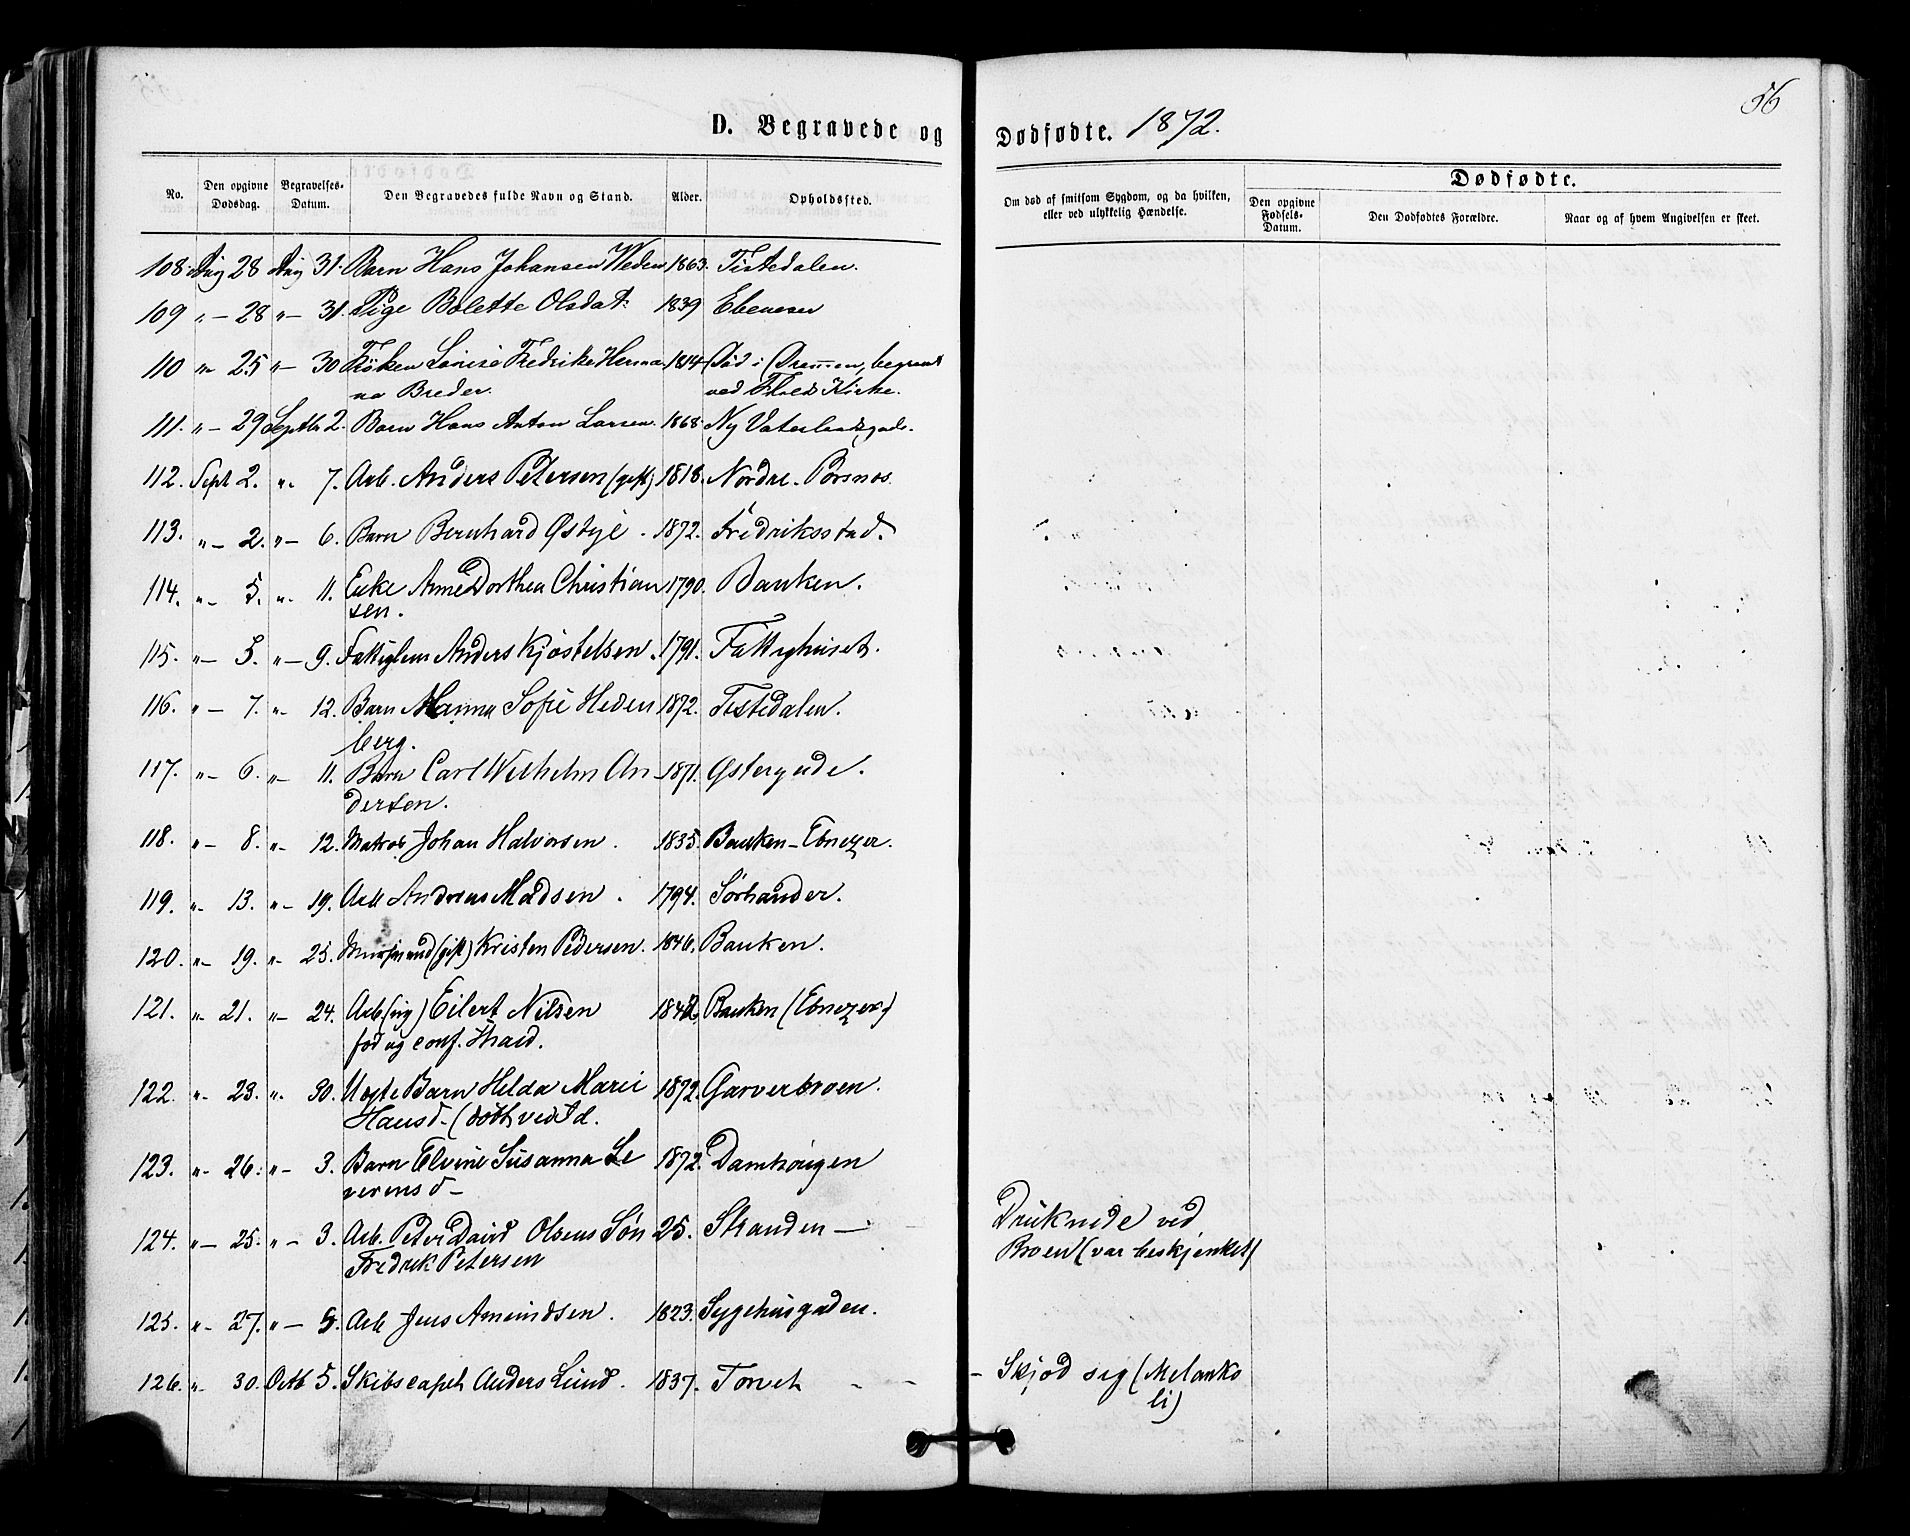 56
D. Begravede og Dødfødte. 1872.
No. Den opgivne Dødsdag. Begravelses-Datum. Den Begravedes fulde Navn og Stand. Alder. Opholdssted. Om død af smitsom Sygdom, og da hvilken, eller ved ulykkelig Hændelse. Dødfødte. Den opgivne Fødsels-Datum. Den Dødfødtes Forældre. Naar og af hvem Angivelsen er skeet.
108. Aug 28 Aug 31. Barn Hans Johansen Weden 1863. Tistedalen.
109 " — 28 " — 31. Pige Bolette Olsdat: 1839 Ebeneser
110 " — 25 " — 30 Frøken Lovise Fredrike Herma- 1814 Død i Dramen, begravet
na Breder. ved Kirke.
111. " — 29 Septbr 2. Barn Hans Anton Larsen. 1868. Ny Vaterlandsgade.
112. Sept 2. " - 7. Arb. Anders Petersen (gift) 1818. Nordre-Porsnes.
113. " — 2. " — 6. Barn Bernhard Østbye. 1872. Fredriksstad.
114. " - 5. " - 11. Enke Anne Dorthea Christian 1790. Banken.
sen.
115. " — 5. " — 9. Fattiglem Anders Kjøstelsen. 1791. Fattighuset.
116. " — 7. " - 12. Barn Hanna Sofie Heden 1872. Tistedalen.
berg.
117. " — 6. " — 11. Barn Carl Wilhelm An- 1871. Østergade.
dersen.
118. " — 8. " - 12. Matros Johan Halvorsen. 1835. Banken - Ebnezer.
119. " - 13. " — 19. Arb Andreas Madsen. 1794. Sørhander.
120. " — 19. " - 25. Murs (gift) Kristen Pedersen. 1846. Banken.
121. " - 21. " — 24. Arb (ug) Eilert Nilsen 1848. Banken (Ebnezer)
fød og conf. Id.
122. " - 23. " - 30. Uægte Barn Helda Marie 1872. Garverbroen.
Hansd - (døbt ved Id.
123. " - 26. " — 3. Barn Elvine Susanna Se 1872. Damhøugen
verensd -
124. " — 25. " — 3. Arb. Peter David Olsens Søn 25. Stranden — Druknede ved
Fredrek Petersen Broen (var beskjenket)
125. " - 27. " — 5. Arb Jens Amundsen. 1823. Sygehusgaden.
126. " - 30. Octb 5. Skibscapet Anders Lund. 1837. Torvet - - - Skjød sig (Melanko
li)